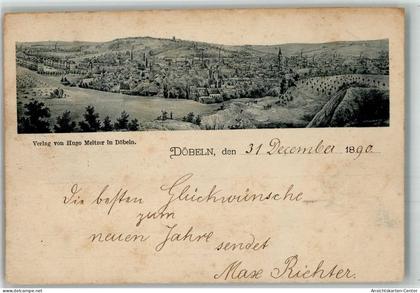 Verlag von Hugo Meltzer in Döbeln.
DÖBELN, den 31 December 1890
Die besten Glückwünsche
zum
neuen Jahre sendet
Max Richter.
www.ansichtskarten-center.de
Ansichtskarten-Center